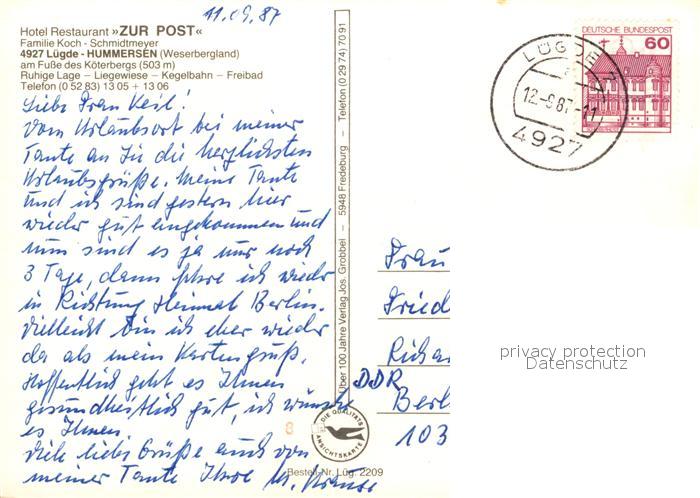 11.09.87
Hotel Restaurant »ZUR POST«
Familie Koch - Schmidtmeyer
4927 Lügde - HUMMERSEN (Weserbergland)
am Fuße des Köterbergs (503 m)
Ruhige Lage – Liegewiese – Kegelbahn – Freibad
Telefon (0 52 83) 13 05 + 13 06
Liebe Frau Keil!
Vom Urlaubsort bei meiner
Tante an Sie die herzlichsten
Urlaubsgrüße. Meine Tante
und ich sind gestern hier
wieder gut eingekommen und
nun sind es ja nur noch
3 Tage, dann fahre ich wieder
in Richtung Heimat Berlin.
Vielleicht bin ich eher wieder
da als mein Kartengruß.
Hoffentlich geht es Ihnen
gesundheitlich gut, ich wünsche
es Ihnen.
Viele liebe Grüße auch von
meiner Tante Ihre
Über 100 Jahre Verlag Jos. Grobbel – 5948 Fredeburg – Telefon (0 29 74) 70 91
DIE QUALITÄTS
ANSICHTSKARTE
8
Bestell-Nr. Lüg. 2209
DEUTSCHE BUNDESPOST
60
LÜGDE 1
12.-9.87-11
4927
Frau
Fried
Richar
DDR
Berl
103
privacy protection
Datenschutz